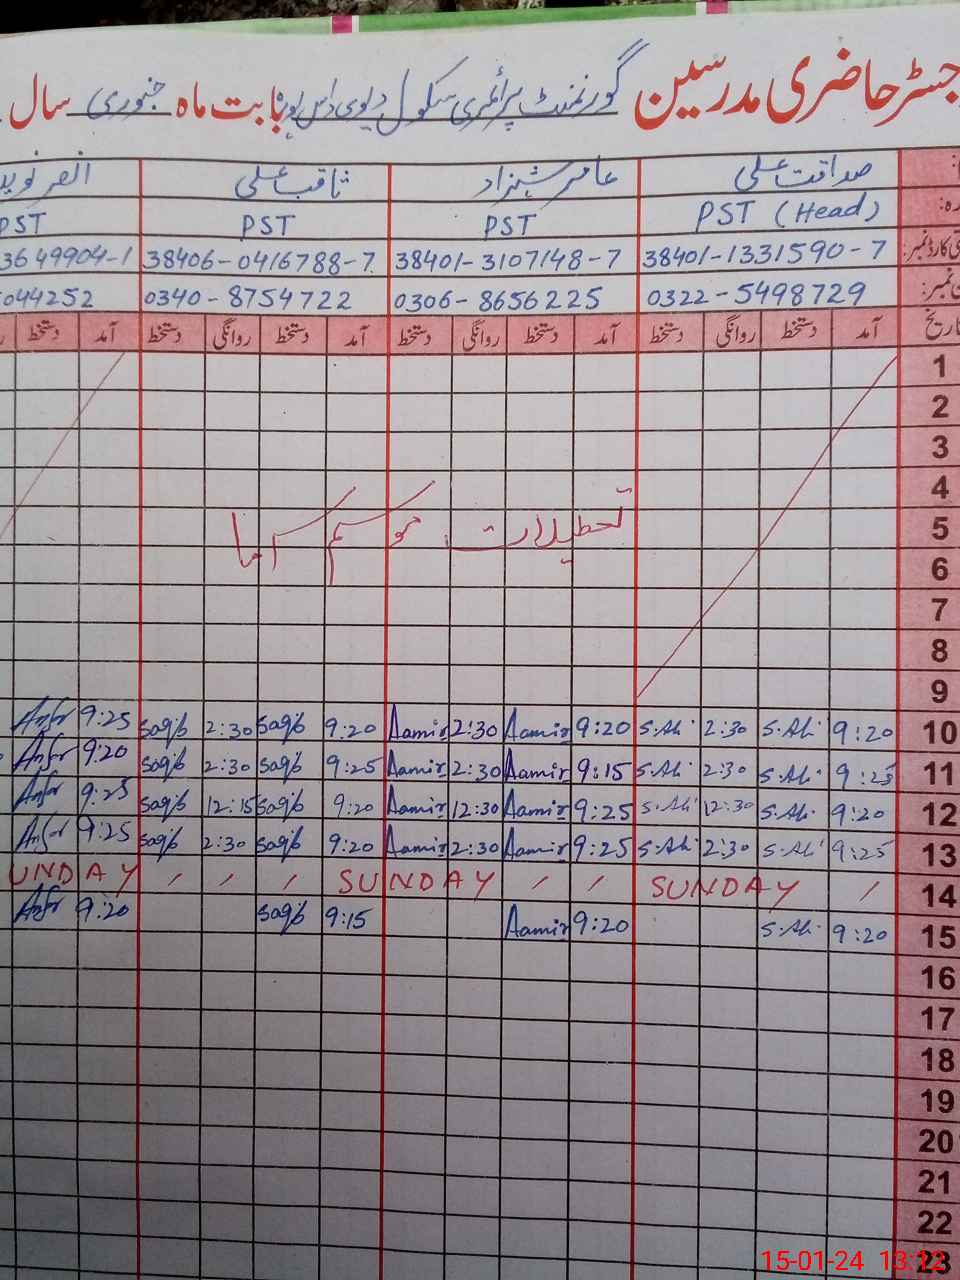 جسٹر حاضری مدرسین گورنمنٹ پرائمری سکول دیوی داس پورہ بابت ماہ جنوری سال
صداقت علی عامر شہزاد ثاقب علی انصر نوید
PST (Head) PST PST PST
38401-1331590-7 38401-3107148-7 38406-0416788-7 3649904-1
0322-5498729 0306-8656225 0340-8754722 044252
آمد دستخط روانگی دستخط آمد دستخط روانگی دستخط آمد دستخط روانگی دستخط آمد دستخط
1
2
3
4
تعطیلات موسم سرما
5
6
7
8
9
10 9:20 S.Ali 2:30 S.Ali 9:20 Aamir 2:30 Aamir 9:20 Saqib 2:30 Saqib 9:25 Ansr
11 9:25 S.Ali 2:30 S.Ali 9:15 Aamir 2:30 Aamir 9:25 Saqib 2:30 Saqib 9:20 Ansr
12 9:20 S.Ali 12:30 S.Ali 9:25 Aamir 12:30 Aamir 9:20 Saqib 12:15 Saqib 9:25 Ansr
13 9:25 S.Ali 2:30 S.Ali 9:25 Aamir 2:30 Aamir 9:20 Saqib 2:30 Saqib 9:25 Ansr
14 SUNDAY SUNDAY UNDAY
15 9:20 S.Ali 9:20 Aamir 9:15 Saqib 9:20 Ansr
16
17
18
19
20
21
22
23
15-01-24 13:12